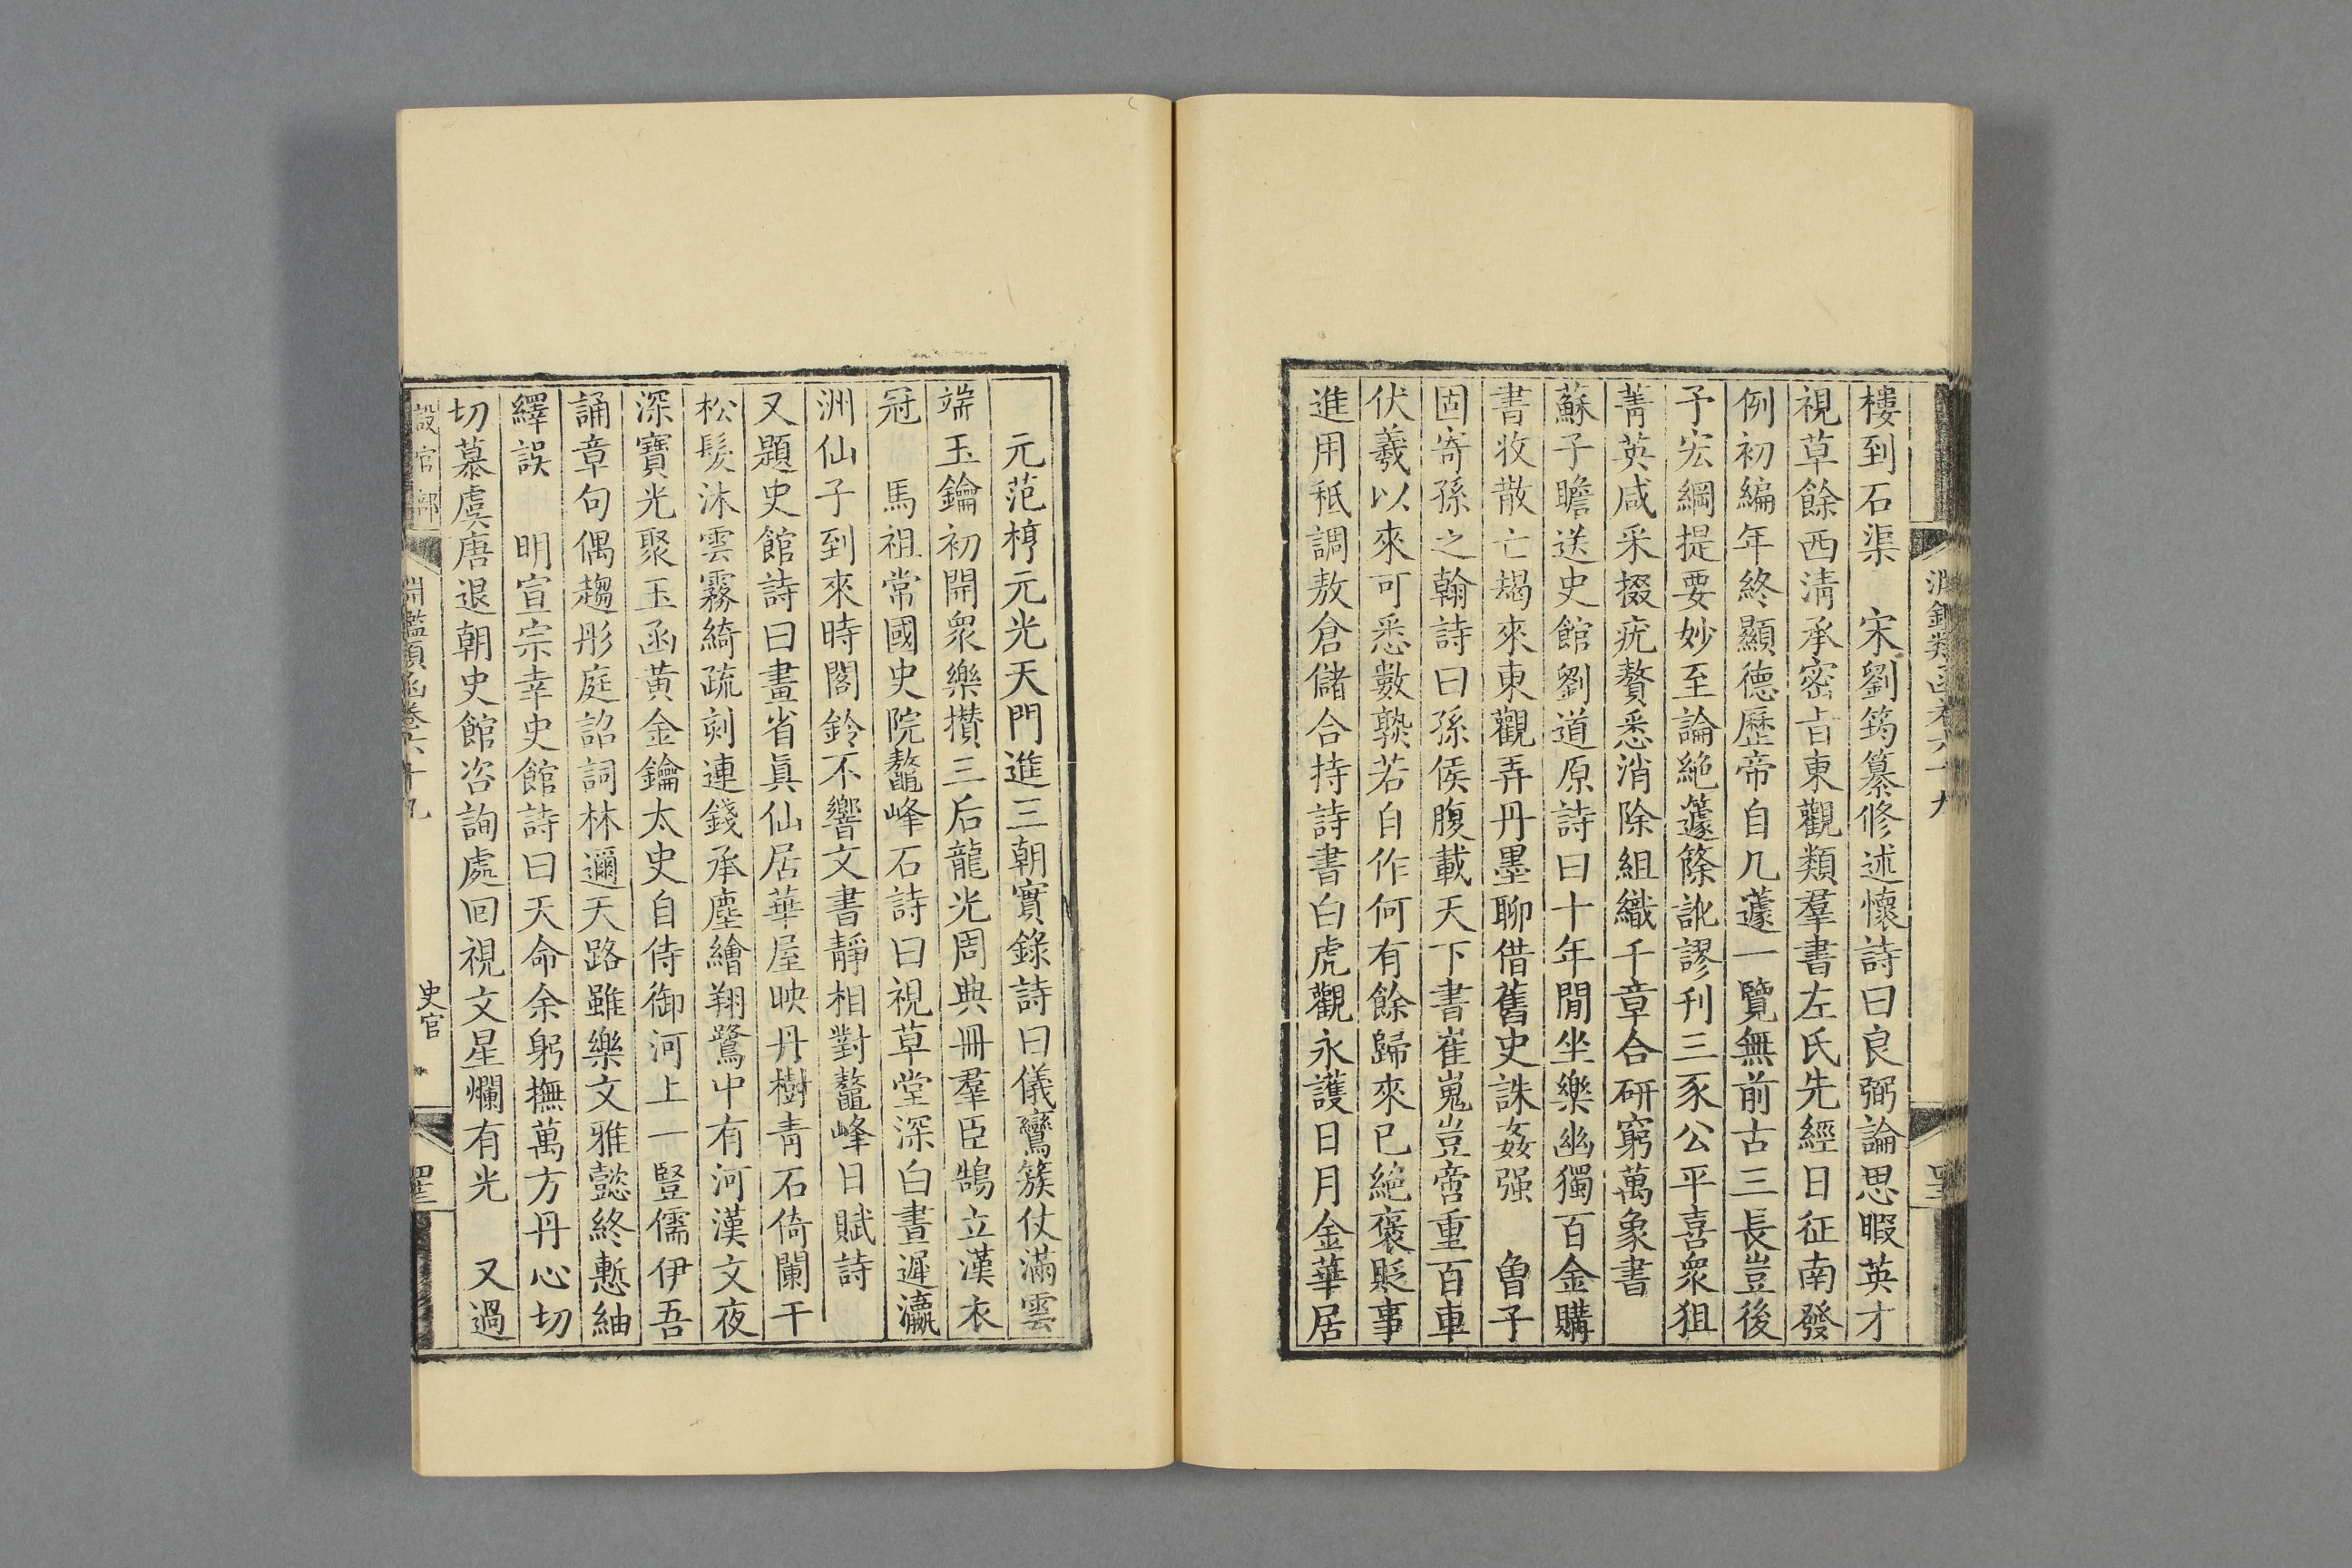 淵鑑類函卷六十九
樓到石渠　宋劉筠纂修述懷詩曰良弼論思暇英才
視草餘西清承密旨東觀類羣書左氏先經日征南發
例初編年終顯德歷帝自凡蘧一覽無前古三長豈後
予宏綱提要妙至論絶籧篨訛謬刊三豕公平喜衆狙
菁英咸采掇疣贅悉消除組織千章合研窮萬象書
蘇子瞻送史館劉道原詩曰十年閒坐樂幽獨百金購
書收散亡朅來東觀弄丹墨聊借舊史誅姦强　魯子
固寄孫之翰詩曰孫侯腹載天下書崔嵬豈啻重百車
伏羲以來可悉數孰若自作何有餘歸來已絶褒貶事
進用秪調敖倉儲合持詩書白虎觀永護日月金華居
元范梈元光天門進三朝實錄詩曰儀鸞簇仗滿雲
端玉鑰初開衆樂攅三后龍光周典冊羣臣鵠立漢衣
冠　馬祖常國史院鼇峰石詩曰視草堂深白晝遲瀛
洲仙子到來時閣鈴不響文書靜相對鼇峰日賦詩
又題史館詩曰畫省眞仙居華屋映丹樹靑石倚闌干
松髮沐雲霧綺疏刻連錢承塵繪翔鷺中有河漢文夜
深寶光聚玉函黃金鑰太史自侍御河上一豎儒伊吾
誦章句偶趨彤庭詔詞林邇天路雖樂文雅懿終慙紬
繹誤　明宣宗幸史館詩曰天命余躬撫萬方丹心切
切慕虞唐退朝史館咨詢處回視文星爛有光　又過
設官部　淵鑑類函卷六十九　史官